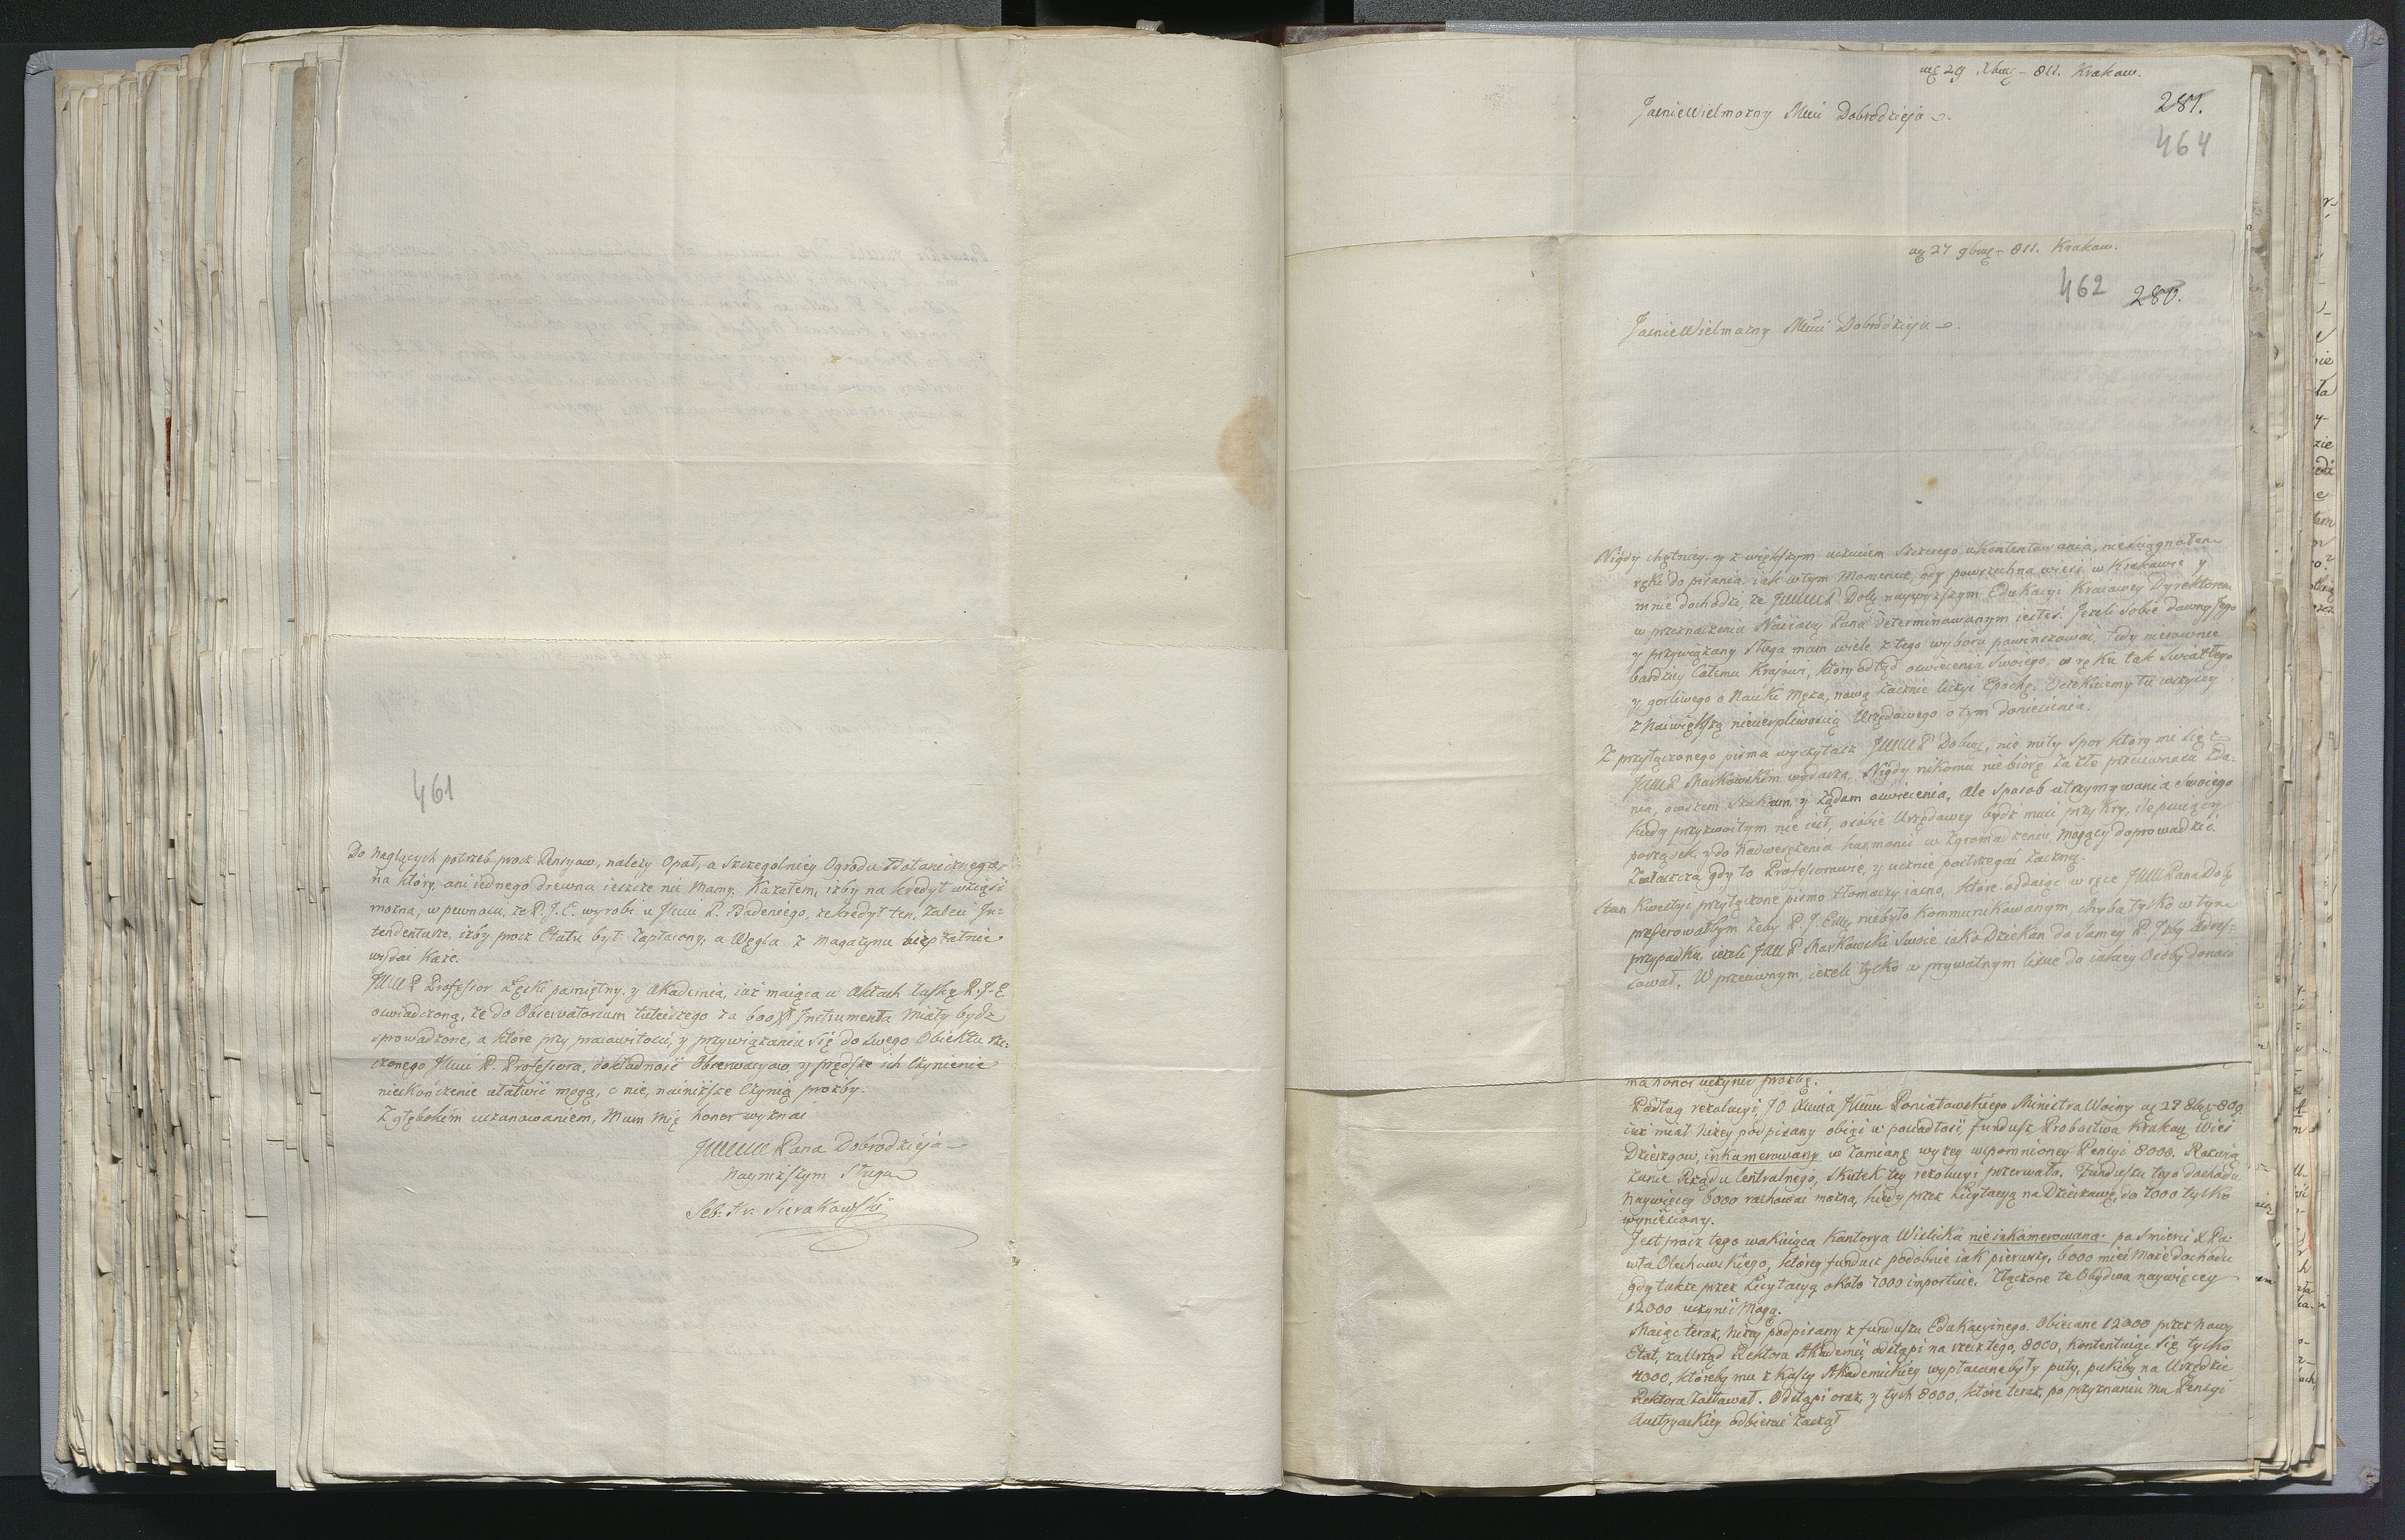 461
Do naglących potrzeb procz Pensyow, należy Opał, a szczegolniey Ogrodu Botanicznego,
na który, ani iednego drewna ieszcze nie mamy. Kazałem, iżby na kredyt wziąść
można, w pewności, że P. J. E. wyrobi u JWW P. Badeniego, że kredyt ten, zaleci In-
tendenturze, iżby procz Etatu był zapłacony, a Węgla z magazynu bezpłatnie
wydać każe.
JWW P Professor Łęski pamiętny, y Akademia, iuż maiąca w Aktach łaskę P. J. E.
oswiadczoną, że do Obserwatorium tuteiszego za 600 Instrumenta miały bydź
sprowadzone, a które przy pracowitości, y przywiązaniu się do swego Obiektu rze-
czonego JWW P. Professora, dokładność Obserwacyow, y prędsze ich czynienie
nieskończenie ułatwić mogą, o nie, nainiższe czynią prozby.
Z głębokim uszanowaniem, mam mię honor wyznać
JWWW Pana Dobrodzieja
Nayniższym Sługą
Seb. Hr. Sierakowski
29 Xbrę - 811. Krakow.
281.
JasnieWielmożny Mści Dobrodzieju
464
27 9brę - 811. Krakow.
462 280.
JasnieWielmożny Mści Dobrodzieju
Nigdy chętniey, y z większym uczuciem szczerego ukontentowania, nie sciągnąłem
ręki do pisania, iak w tym momencie, gdy powszechna wieść w Krakowie y
mnie dochodzi, że JWWWP Dobę naywyższym Edukacyi Kraiowey Dyrektorem
w przeznaczenia Pana determinowanym iesteś. Jeżeli sobie dawny Jego
y przywiązany sługa mam wiele z tego wyboru powinszować, tedy nierownie
bardziey całemu Krajowi, który odtąd oswiecenia swoiego, w ręku tak swiatłego
y gorliwego o Nauki męża, nową zacznie liczyć Epochę. Oczekuiemy tu wszyscy
z naiwiększą niecierpliwością Urzędowego o tym doniesienia.
Z przyłączonego pisma wyczytasz JWWWP Dobrę, nie miły spor który mi się z
JWW P Markowskim wydarza. Nigdy nikomu nie biorę za złe przeciwności zda-
nia, owszem szukam, y żądam oswiecenia, ale sposob utrzymywania swoiego
kiedy przyzwoitym nie iest, osobie Urzędowey bydź musi przykry, ile psuiący
porządek, y do nadwerężenia harmonii w Zgromadzeniu, mogący doprowadzić.
Zwłaszcza, gdy to Professorowie, y ucznie postrzegać zaczną.
Stan Kwestyi przyłączone pismo tłomaczy iasno, które oddaiąc w ręce JWW Pana Dobę
preferowałbym żeby P. J. Edu, niebyło kommunikowanym, chyba tylko w tym
przypadku, ieżeli JWW P Markowski swoie iako Dziekan do samey P. Izby adres-
sował. W przeciwnym, ieżeli tylko w prywatnym liscie do iakiey Osoby donosi
ma honor uczynić prozbę.
Podług rezolucyi, JO Xięcia JWW Poniatowskiego Ministra Woiny 27 8brę 809
iuż miał niżey podpisany obiąć w posiadłość, fundusz Probostwa Krakow, Wieś
Dzierzgow, inkamerowany w zamianę wyżey wspomnioney Pensyi 8000.
zanie Rządu Centralnego, skutek tey rezolucyi przerwało. Funduszu tego dochodu
naywięcey 6000 rachować można, kiedy przez Licytacyą na Dzierżawę, do 7000 tylko
wyniesiony.
Jest procz tego wakuiąca Kantorya Wislicka nie inkamerowana po smierci X Pa-
wła Olechowskiego, którey fundusz podobnie iak pierwszy, 6000 mieć może dochodu
gdy także przez Licytacyą około 7000 importuie. Złączone te Obydwa naywięcey
12000 uczynić mogą.
Maiąc teraz, niżey podpisany z funduszu Edukacyinego. Obiecane 12000 przez nowy
Etat, za Urząd Rektora Akademii odstąpi na rzecz tego, 8000, kontentuiąc się tylko
4000, któreby mu z kassy Akademickiey wypłacone były puty, pukiby na Urzędzie
Rektora zostawał. Odstąpi oraz, y tych 8000, które teraz, po przyznaniu mu Pensyi
Austryackiey odbierać zaczął